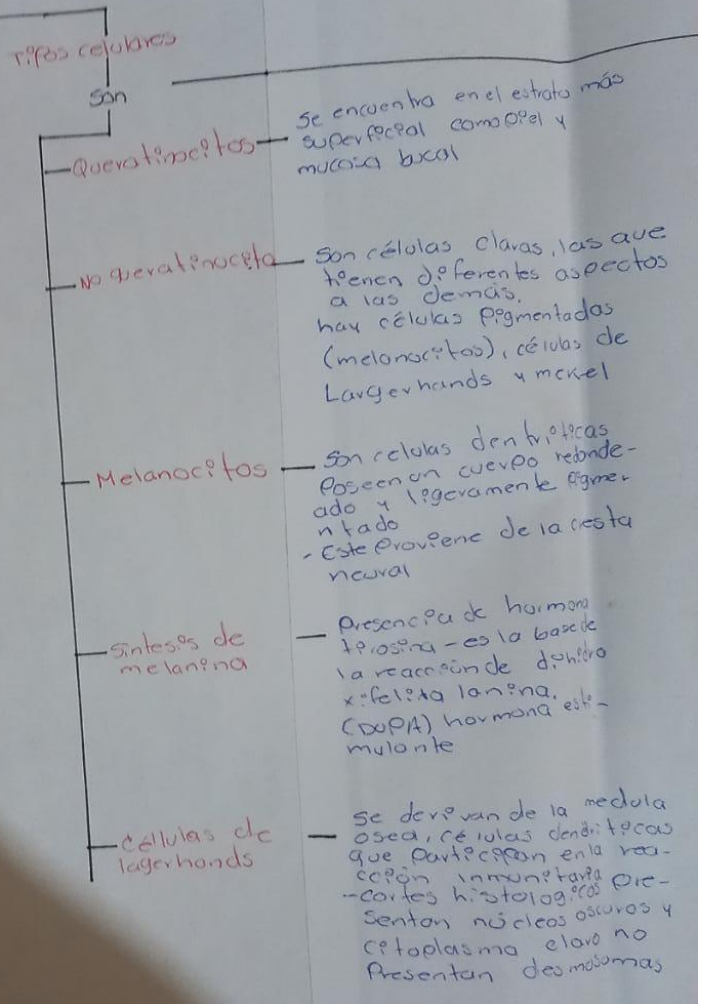 Tipos celulares
Son
Queratinocitos
Se encuentra en el estrato más
superficial como piel y
mucosa bucal
No queratinocito
Son células claras, las que
tienen diferentes aspectos
a las demás.
hay células pigmentadas
(melanocitos), células de
Largerhands y merkel
Melanocitos
Son celulas dentriticas
Poseen un cuerpo redonde-
ado y ligeramente pigme-
ntado
- Este proviene de la cresta
neural
Síntesis de
melanina
Presencia de hormona
tirosina - es la base de
la reacción de dihidro
xifelita lanina.
(DOPA) hormona esti-
mulante
céllulas de
lagerhands
Se derivan de la medula
osea, células dendriticas
que participan en la rea-
cción inmunitaria
- cortes histologicos pre-
sentan núcleos oscuros y
citoplasma claro no
Presentan desmosomas